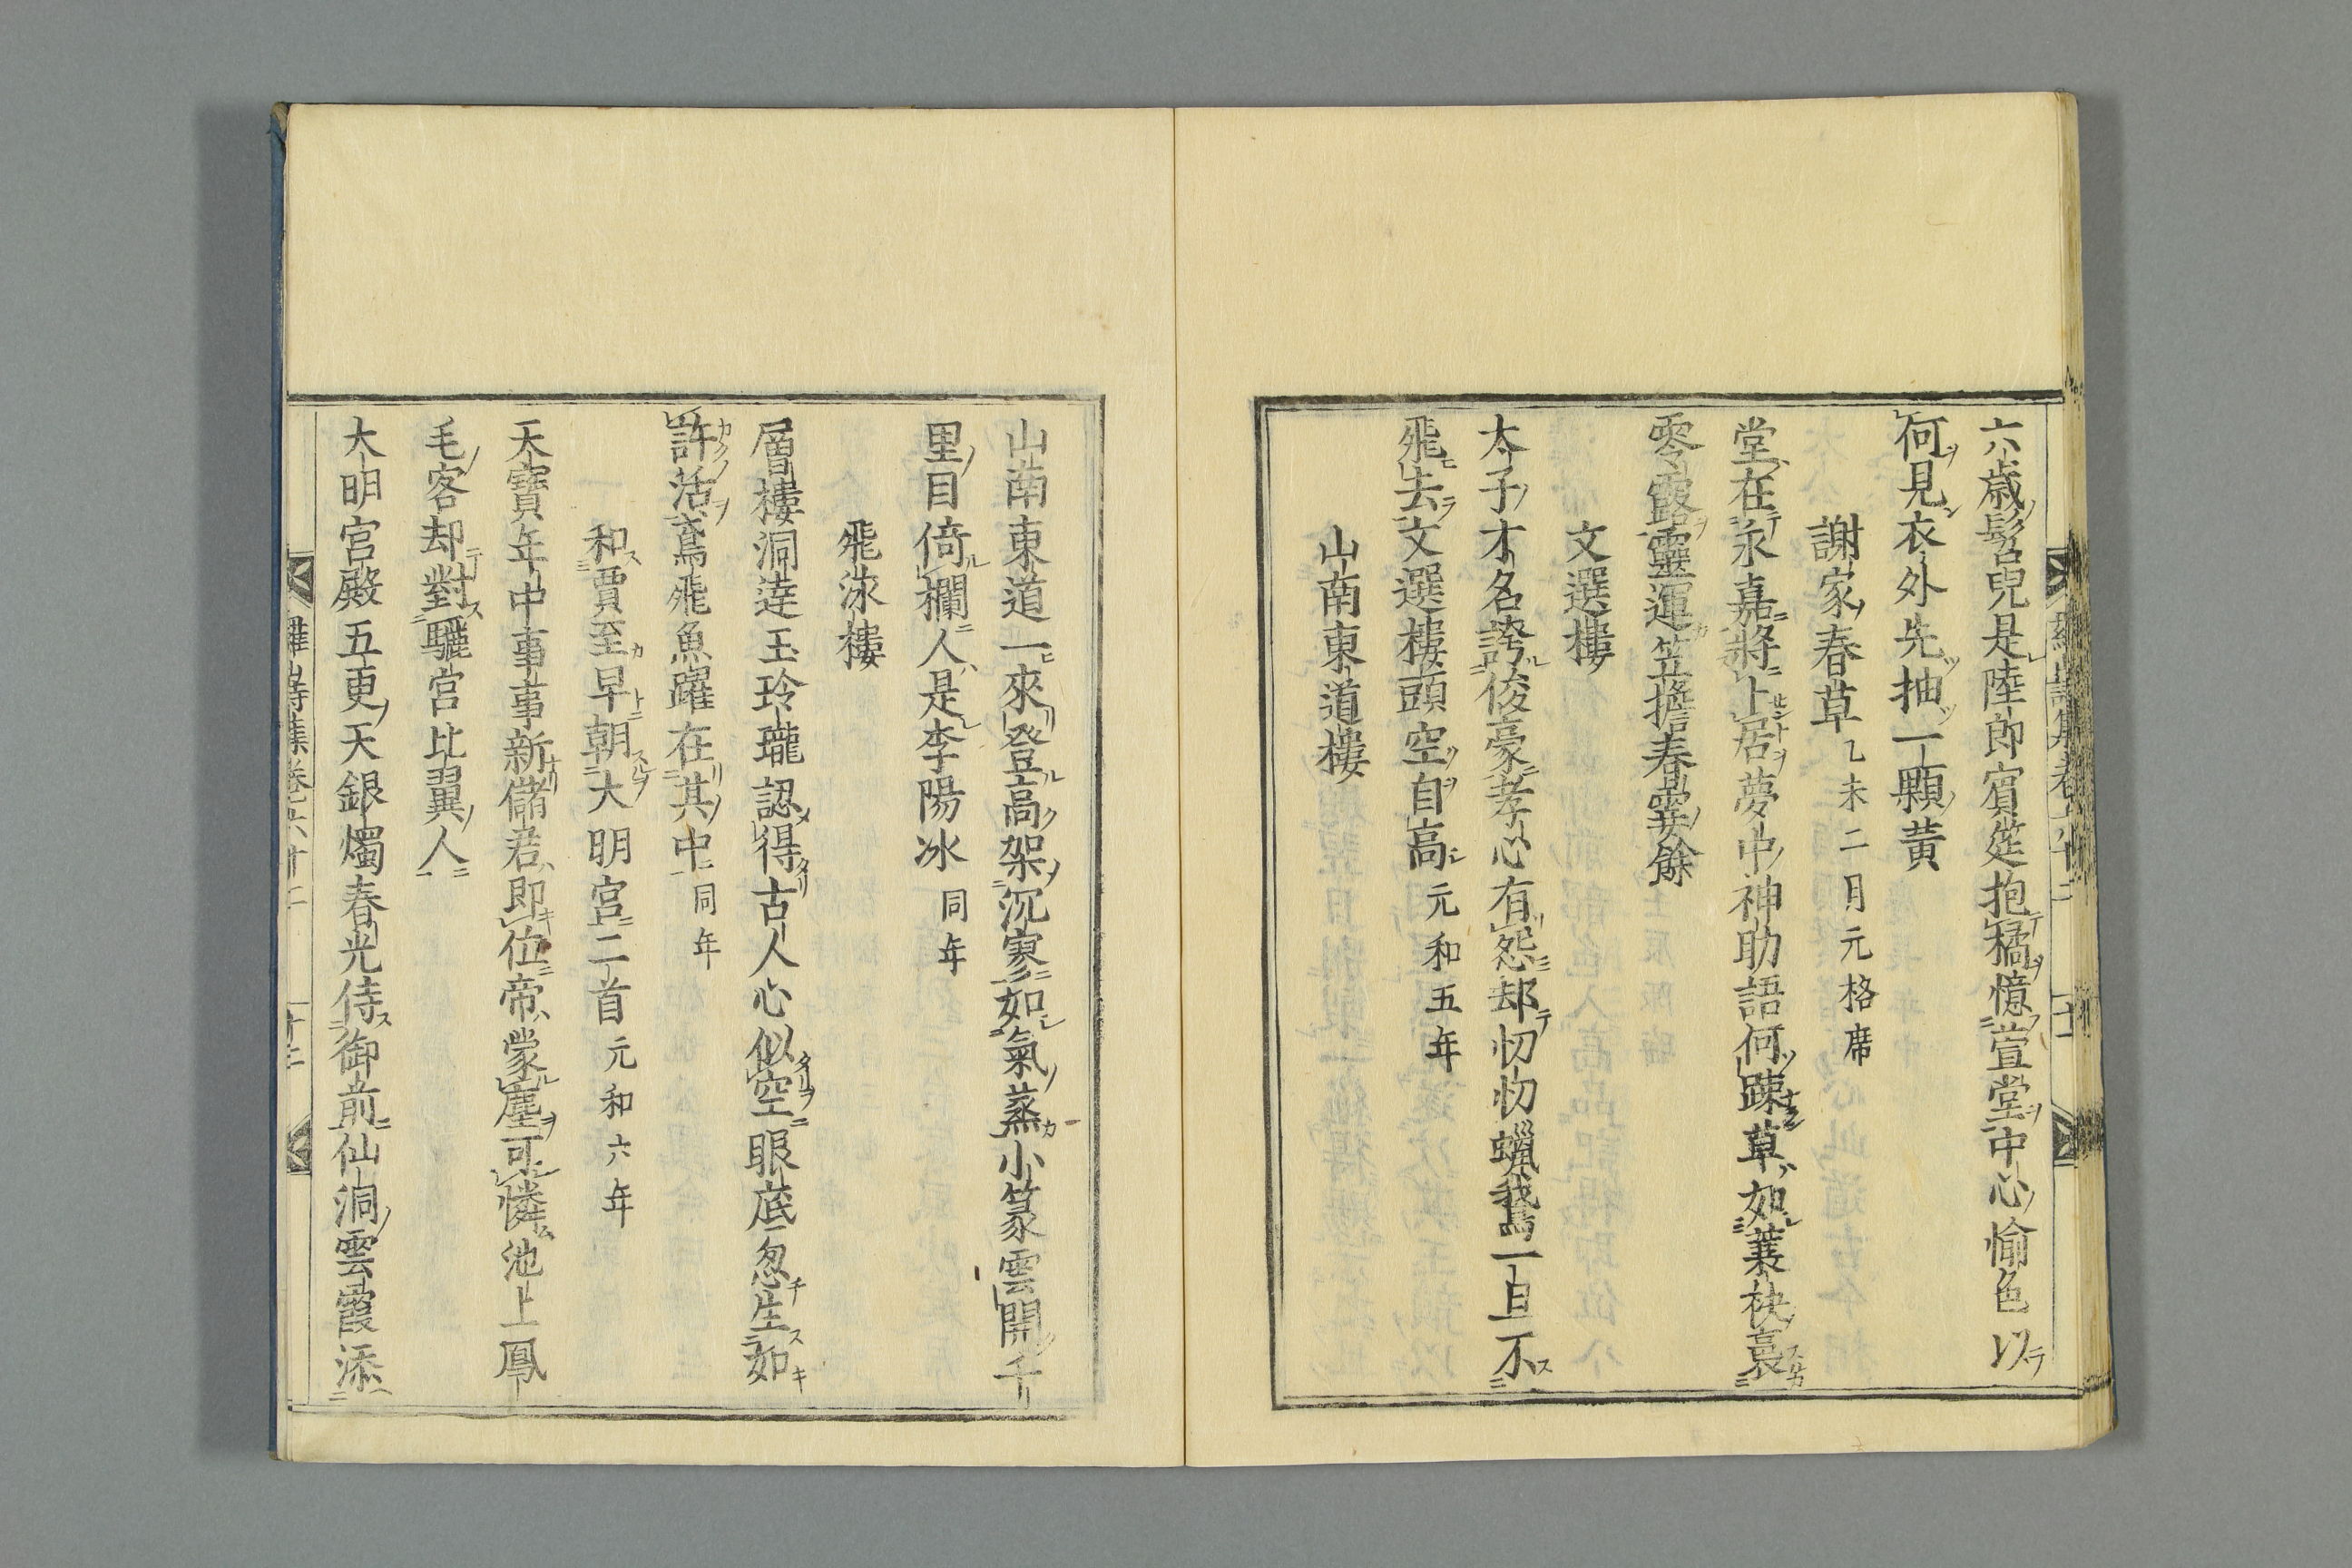 六歳髫兒是陸郎賓筵抱橘憶萱堂中心愉色以
何見衣外先抽一顆黄
謝家春草乙未二月元格席
堂在永嘉將卜居夢中神助語何踈草如蓑袂裛
零露靈運笠擔春寠餘
文選樓
太子才名誇俊豪孝心有怨却忉忉蠟鵞一旦不
飛去文選樓頭空自高元和五年
山南東道樓
山南東道一來登高架沉寥如氣蒸小篆雲開千
里目倚欄人是李陽冰同年
飛泳樓
層樓洞達玉玲瓏認得古人心似空眼底忽生如
許活鳶飛魚躍在其中同年
和賈至早朝大明宮二首元和六年
天寶年中事事新儲君即位帝蒙塵可憐池上鳳
毛客却對驪宮比翼人
大明宮殿五更天銀燭春光侍御前仙洞雲霞添
羅山詩集卷六十二
十二